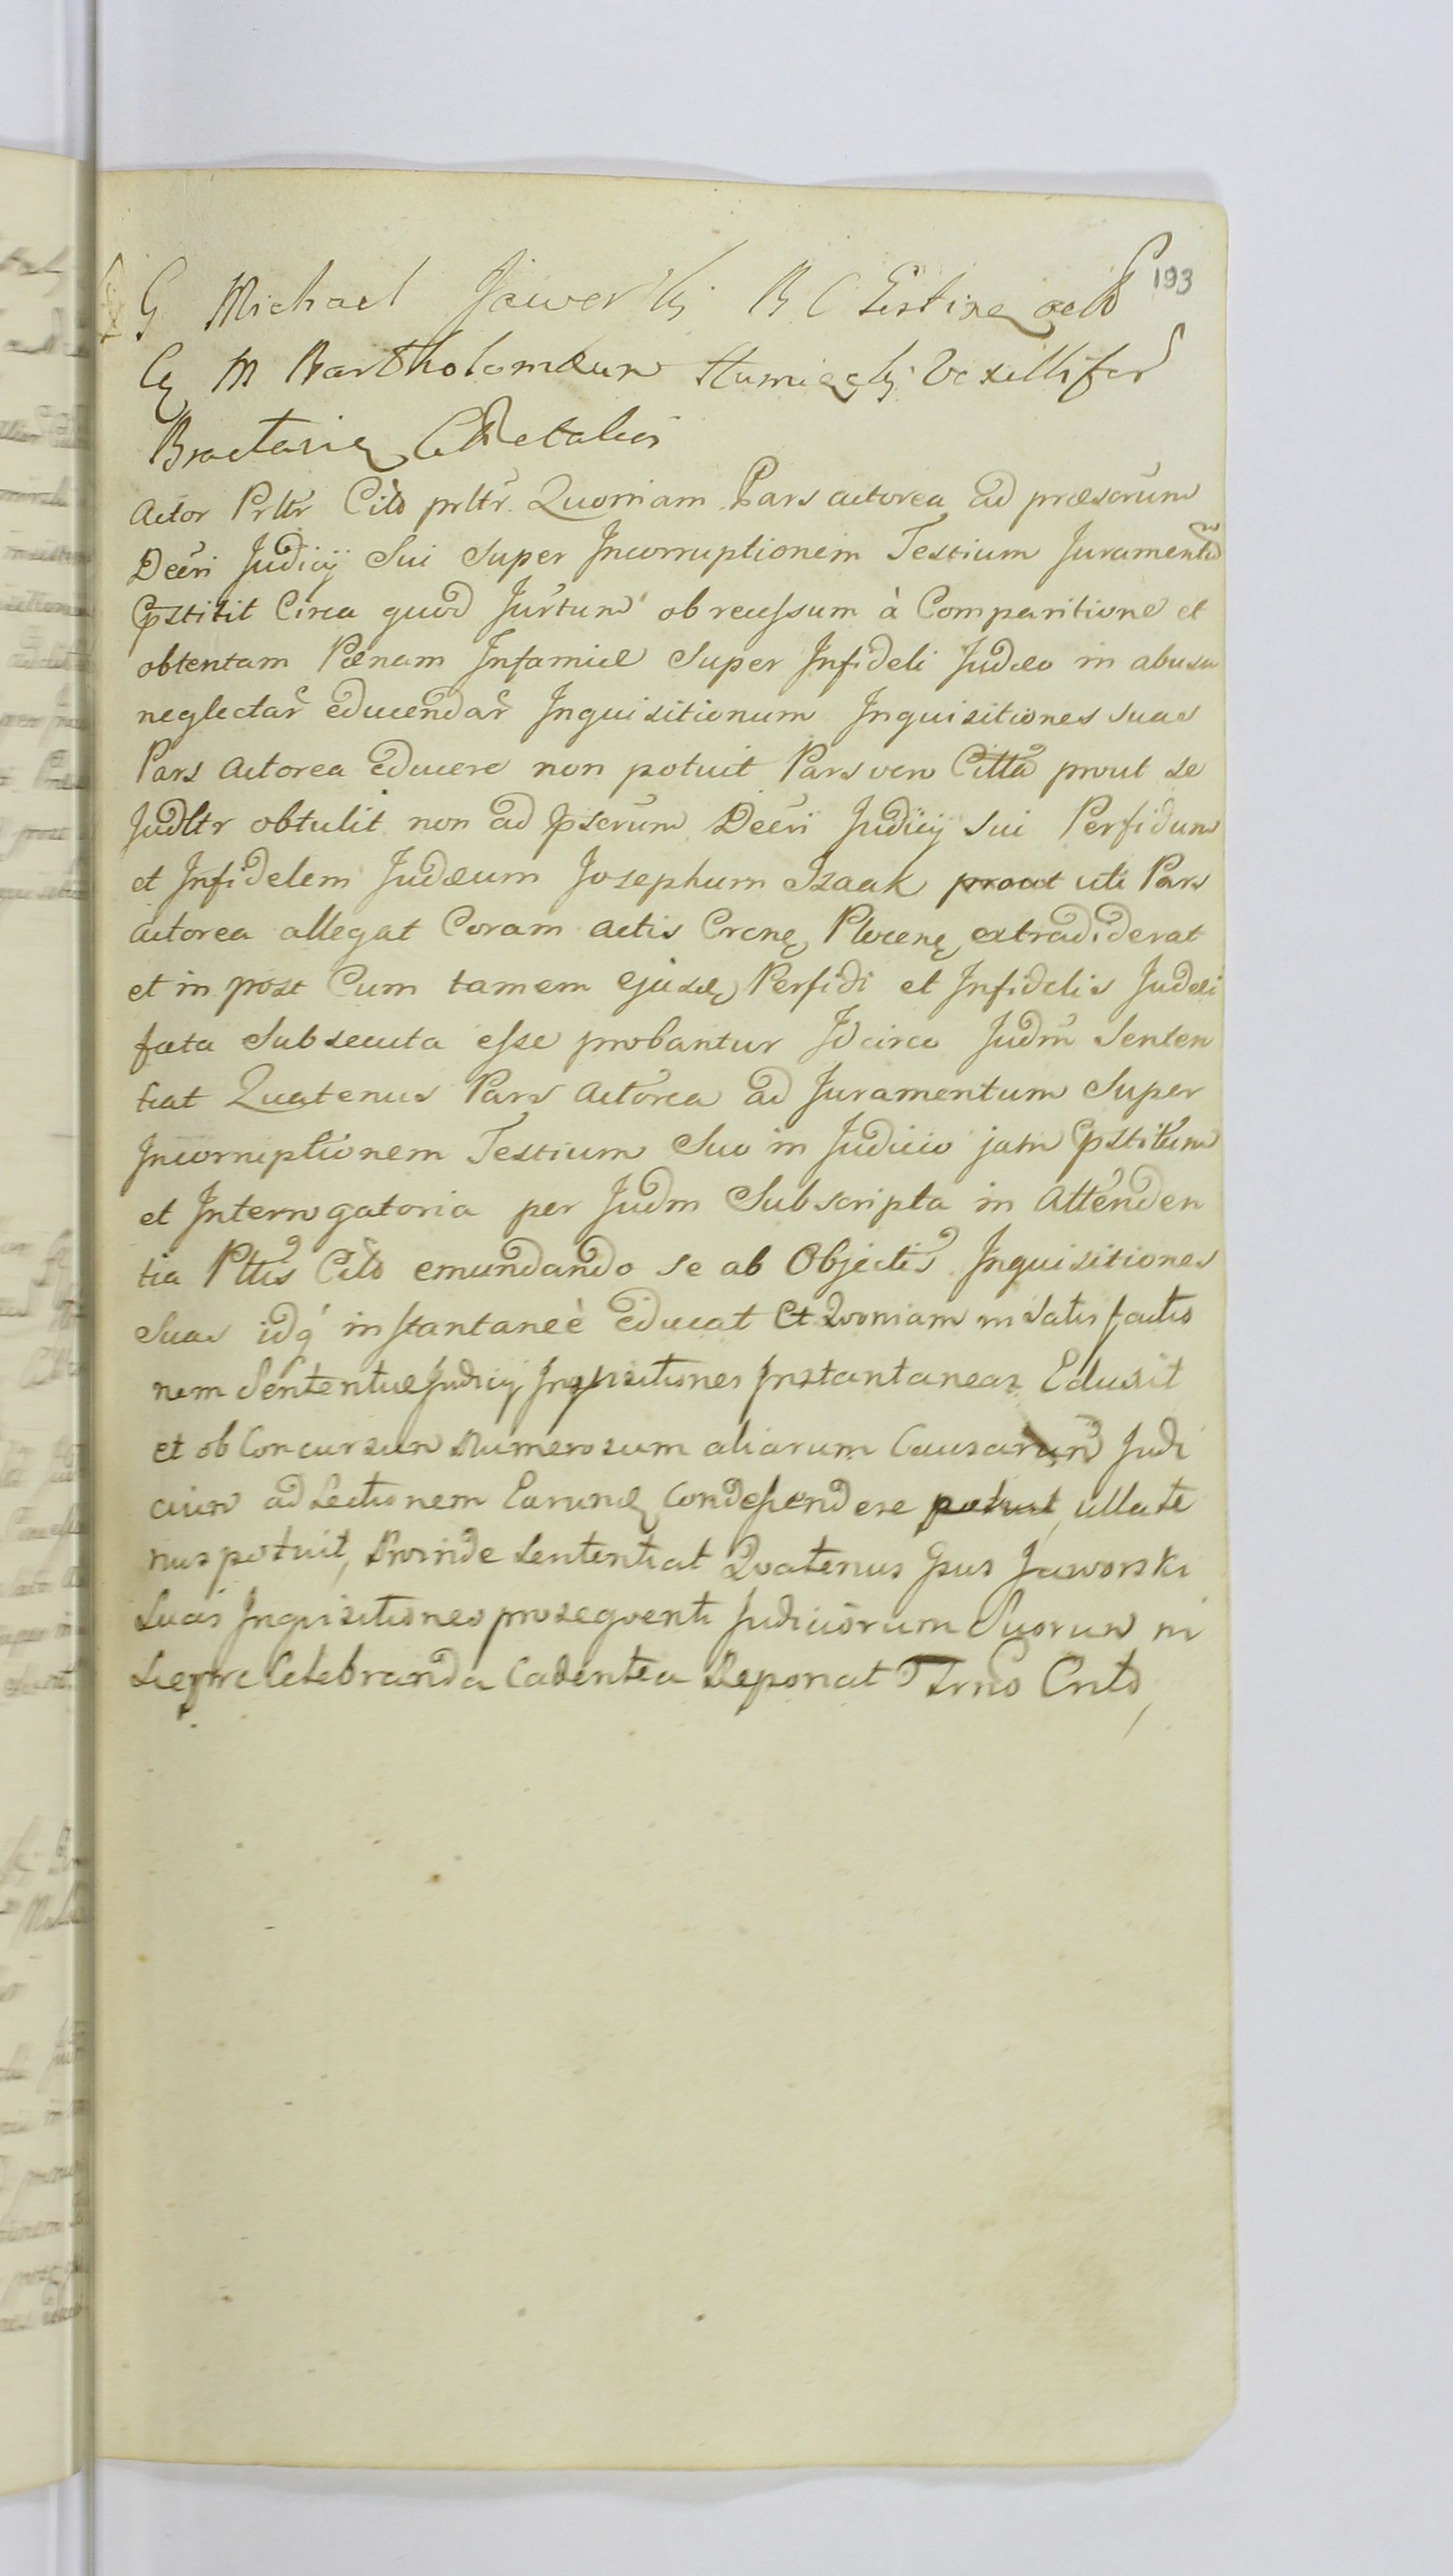 193
G Michael Jawor ki B C
M Bartholomæum Vexillifer
Actor Prltr Citō prltr. Quoniam Pars actorea ad præscrum
Decri Judicij Sui Super Incorruptionem Testium Juramentū
Cpstitit Circa quod Jurtum ob recessum à Comparitione et
obtentam Pœnam Infamiæ Super Infideli Judæo in abusu
neglectar educendar Inquisitionum Inquisitiones suas
Pars actorea educere non potuit Pars vero Citta prout se
Judltr obtulit non ad pscrum Decri Judicij sui Perfidum
et Infidelem Judæum Josephum Izaak prout uti Pars
actorea allegat Coram actis extradiderat
et in post Cum tamem Perfidi et Infidelis Judæi
fata Subsecuta esse probantur Idcirco Judm Senten
tiat Quatenus Pars actorea ad Juramentum Super
Incorruptionem Testium Suo in Judicio jam Cpstitum
et Interrogatoria per Judm Subscripta in Attenden
tia Pttis Citō emundando se ab Objectis Inquisitiones
suas idq́ instantaneè educat Et Quoniam in Satisfactio
nem Sententiæ Judicij Inquisitiones Instantaneas Eduxit
et ob Concursum Numerosum aliarum Causarum Judi
cium ad Lectionem Condescendere potuit ullate
nus potuit, Proinde Sententiat Quatenus Gsus Jaworski
Suas Inquisitiones prosequenti Judiciorum Suorum in
Celebranda Cadentia Reponat Trno Cnto,